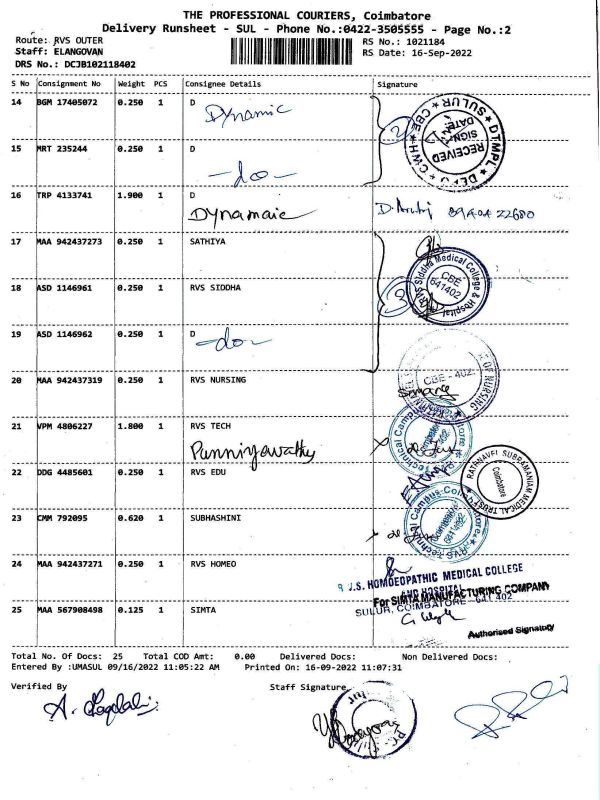 THE PROFESSIONAL COURIERS, Coimbatore
Delivery Runsheet - SUL - Phone No.:0422-3505555 - Page No.:2
Route: RVS OUTER
RS No.: 1021184
Staff: ELANGOVAN
RS Date: 16-Sep-2022
DRS No.: DCJB102118402
S No Consignment No Weight Pcs Consignee Details Signature
14 BGM 17405072 0.250 1 D
Dynamic
2
CWH CBE SULUR DTMPL
RECEIVED
SIGN:
DATE:
15 MRT 235244 0.250 1 D
-do-
16 TRP 4133741 1.900 1 D
Dynamaic
17 MAA 942437273 0.250 1 SATHIYA
18 ASD 1146961 0.250 1 RVS SIDDHA
3
RVS Siddha Medical College & Hospital
CBE
641402
19 ASD 1146962 0.250 1 D
-do-
20 MAA 942437319 0.250 1 RVS NURSING
CBE - 402.
OF NURSING
21 VPM 4806227 1.800 1 RVS TECH
22 DDG 4485601 0.250 1 RVS EDU
RATHNAVEL SUBRAMANIAM MEDICAL TRUST
Coimbatore
23 CMM 792095 0.620 1 SUBHASHINI
RVS Technical Campus-Coimbatore
Coimbatore
641402
24 MAA 942437271 0.250 1 RVS HOMEO
HOMOEOPATHIC MEDICAL COLLEGE
AND HOSPITAL
SULUR, COIMBATORE - 641 402
25 MAA 567908498 0.125 1 SIMTA
For SIMTA MANUFACTURING COMPANY
Authorised Signatory
Total No. Of Docs: 25 Total COD Amt: 0.00 Delivered Docs: Non Delivered Docs:
Entered By :UMASUL 09/16/2022 11:05:22 AM Printed On: 16-09-2022 11:07:31
Verified By
Staff Signature